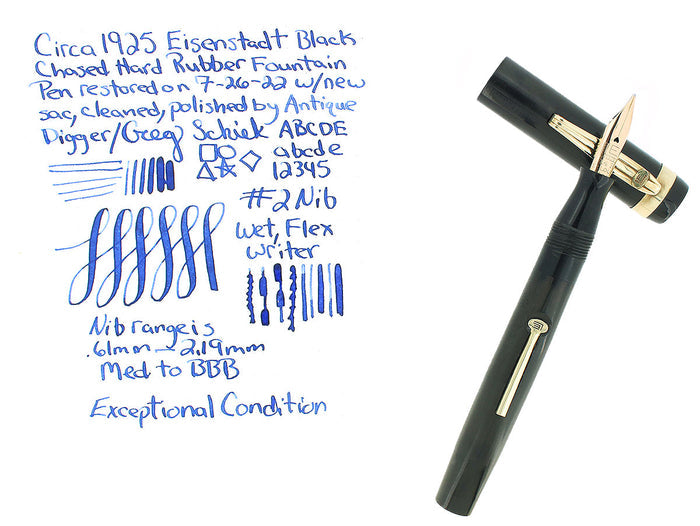 Circa 1925 Eisenstadt Black
Chased Hard Rubber Fountain
Pen restored on 7-26-22 w/new
sac, cleaned, polished by Antique
Digger/Greg Schiek ABCDE
abcde
12345
#2 Nib
Wet, Flex
Writer
Nib range is
.61mm - 2.19mm
Med to BBB
Exceptional Condition